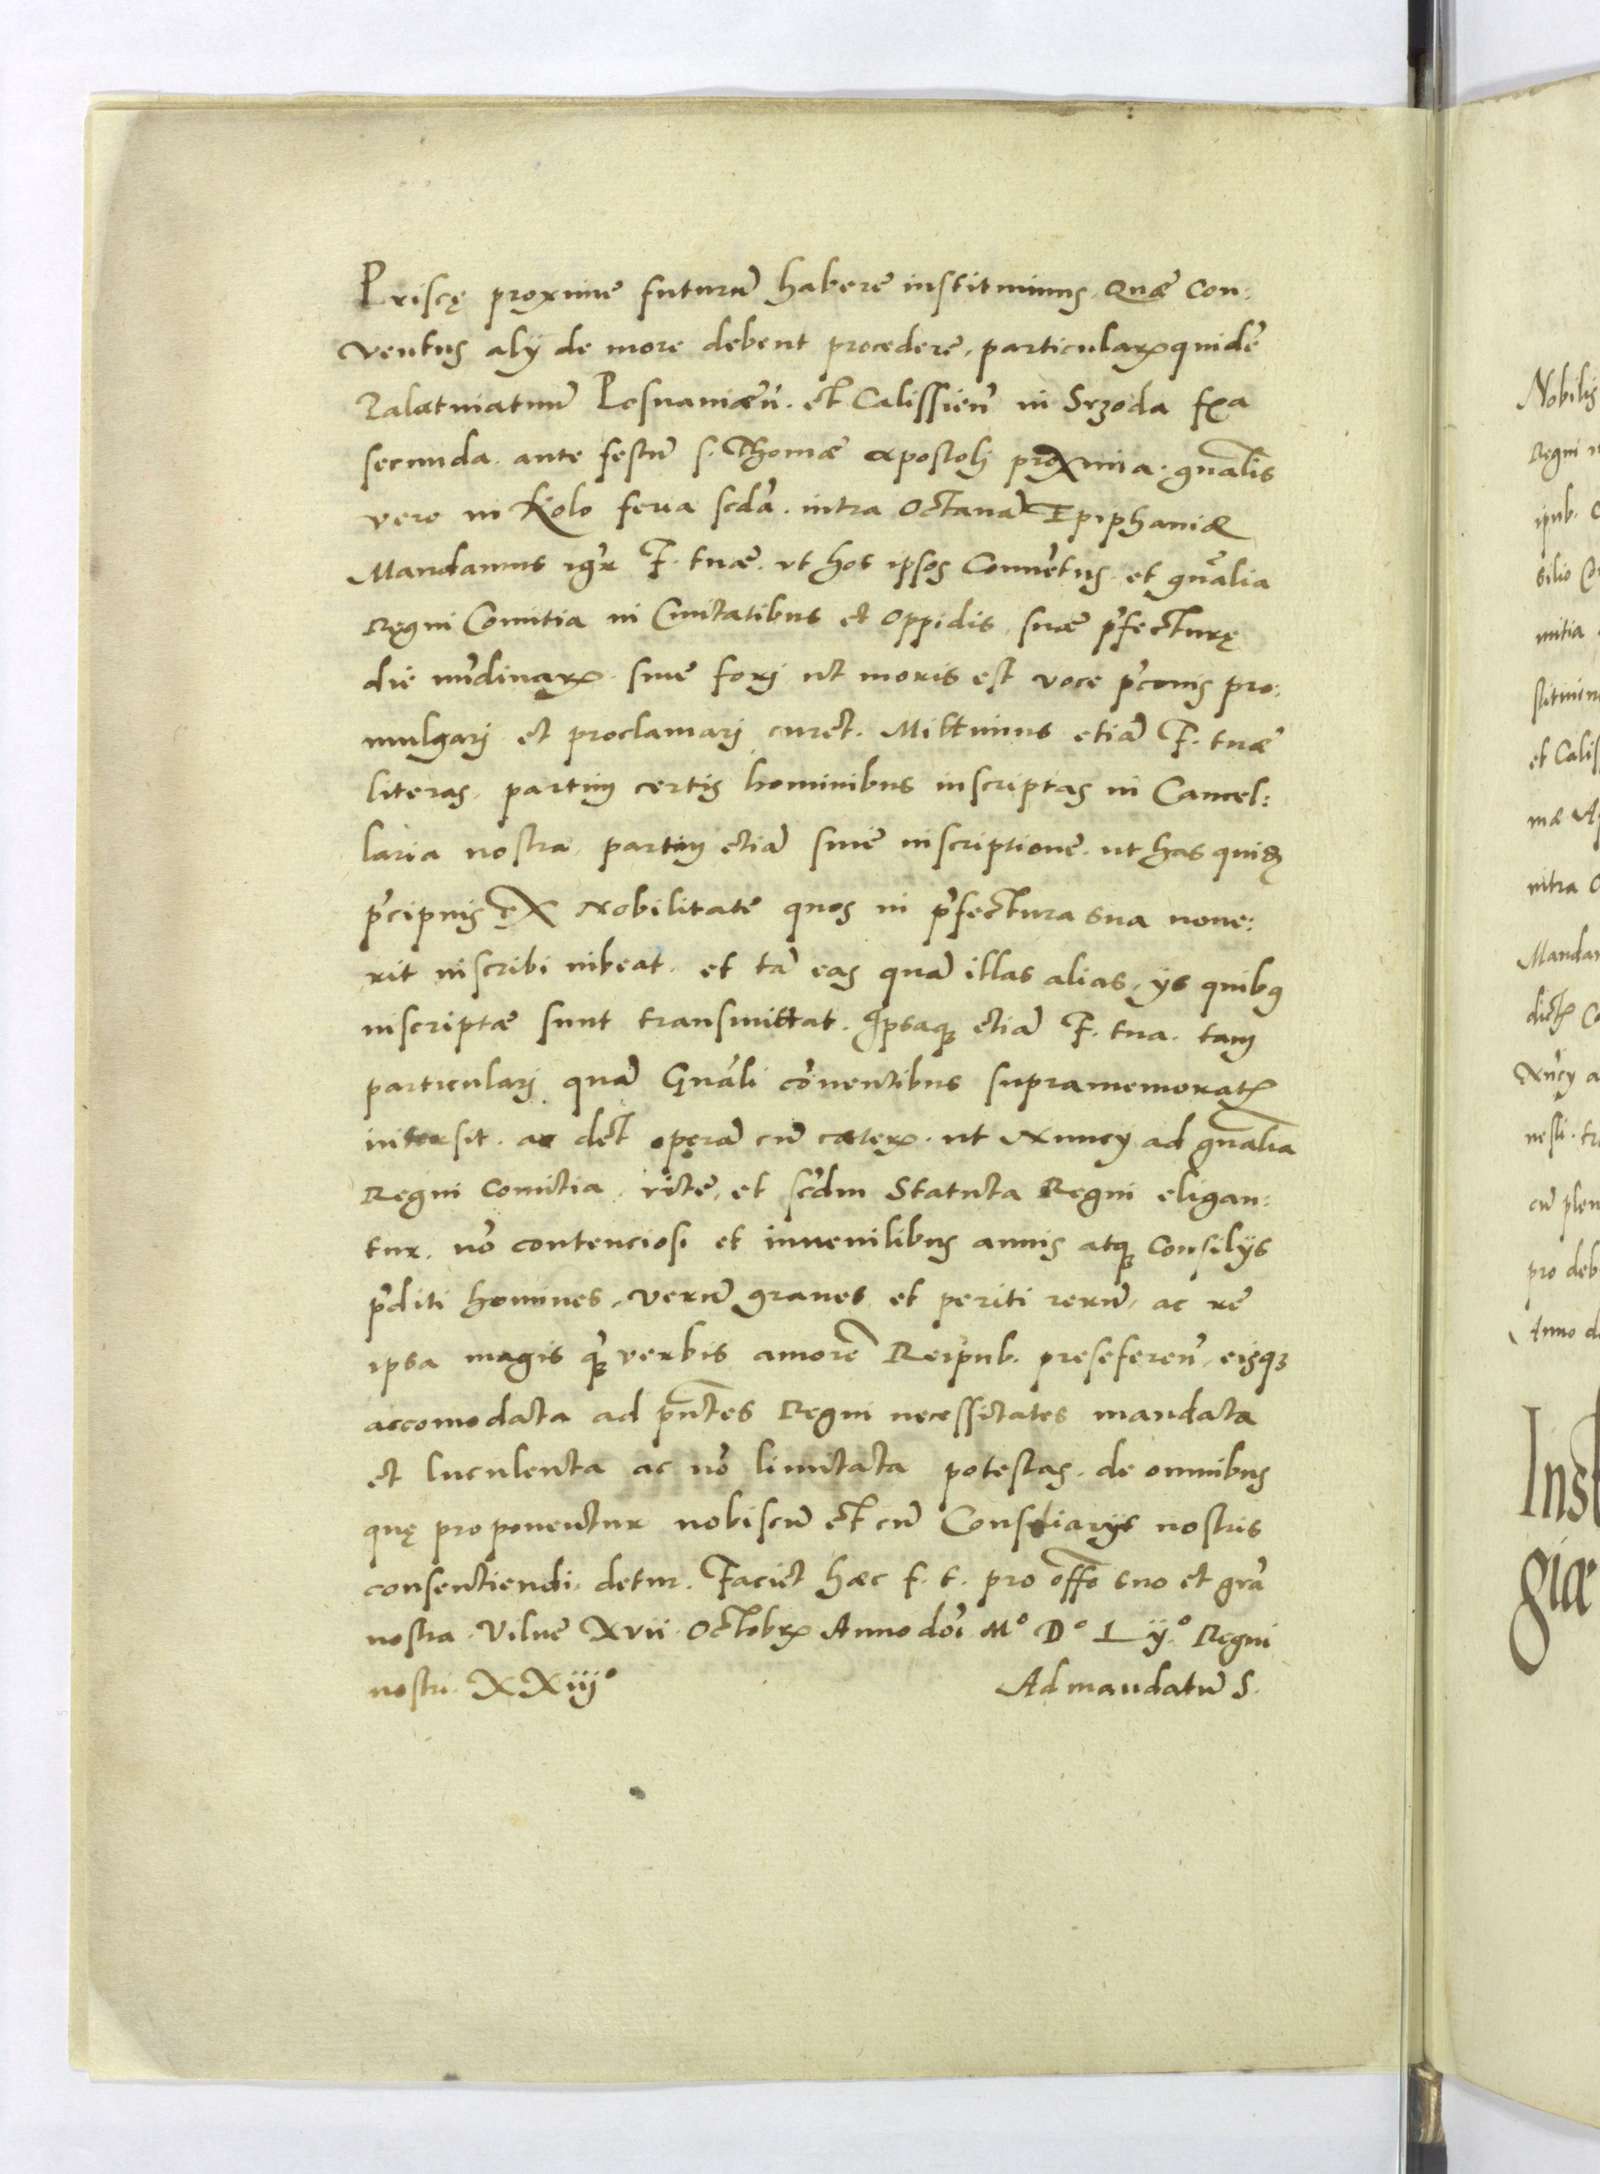 Priscę proxime futurū habere instituimus. Quæ Con:
ventus alÿ de more debent procedere, particulares quidē
Palatinatuum Posnaniæn̄. et Calissien̄ in Srzoda fr̄a
secunda. ante festū s. Thomæ apostolj proxima. gn̄alis
vero in Kolo feria scd̄a. intra Octauā Epiphaniæ
Mandamus igr̄ F. tuæ. vt hos ipsos Conuētus. et gn̄alia
Regni Comitia in Ciuitatibus et Oppidis suæ p̄fecturę
die nūdinarꝝ siue forj ut moris est voce p̄conis pro:
mulgarj et proclamarj curet. Mittimus etiā F. tuæ
literas, partim certis hominibus inscriptas in Cancel:
laria nostra, partim etiā sine inscriptione. ut has quidē
p̄cipuis ex Nobilitate quos in p̄fectura sua noue:
rit inscribi iubeat. et tā eas quā illas alias, ÿs quibus
inscriptæ sunt transmittat. Ipsaq̨ etiā F. tua. tam
particularj quā Gn̄ali cōuentibus supramemoratis
intersit. ac det operā cū cæteris. ut Nuncÿ ad gn̄alia
Regni comitia. rite, et scd̄m Statuta Regni eligan:
tur. nō contenciosi et iuuenilibus annis atq̨ Consilÿs
p̄diti homines, verū graues et periti rerū, ac re
ipsa magis q̄ verbis amorē Reipub. preseferen̄, eisq̨
accomodata ad pn̄tes Regni necessitates mandata
et luculenta ac nō limitata potestas. de omnibus
quę proponentur nobiscū et cū Consiliarÿs nostris
consentiendi, detur. Faciet hæc f. t. pro offō suo et grā
nostra. Vilnæ Xvii Octobrꝭ Anno dn̄i Mº Dº Lÿº Regni
nostri XXiijº Ad mandatū S.
Nobilis
Regni
ipub.
silio
mitia
et Calis
mæ
intra
Mandam
Nuncÿ
cū plen
pro deb
Anno
Inst
giæ